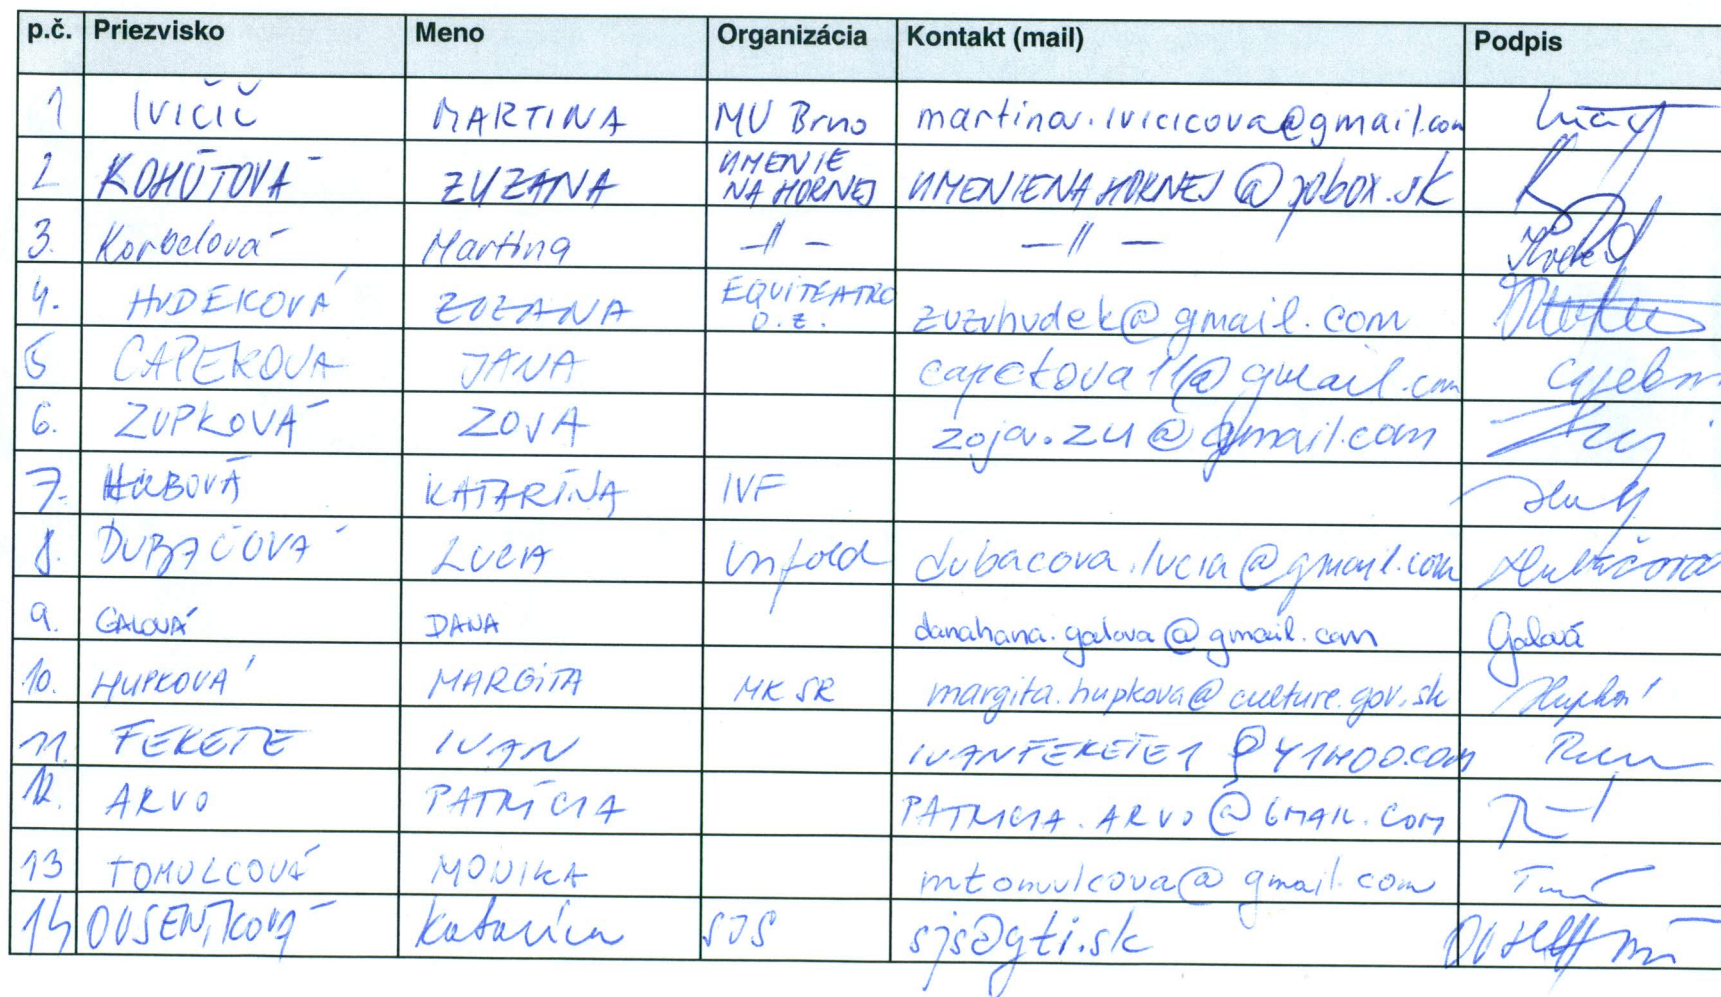 p.č. Priezvisko Meno Organizácia Kontakt (mail) Podpis
1 IVIČIČ MARTINA MU Brno martina.ivicicova@gmail.com
2 KOHÚTOVÁ ZUZANA UMENIE NA HORNEJ UMENIENAHORNEJ@pobox.sk
3. Korbelová Martina –//– –//–
4. HUDEKOVÁ ZUZANA EQUITEATRO O.Z. zuzuhudek@gmail.com
5 CAPEKOVA JANA capekova11@gmail.com
6. ZUPKOVÁ ZOJA zoja.zu@gmail.com
7. HUBOVÁ KATARÍNA IVF
8. DUBAČOVÁ LUCIA Unfold dubacova.lucia@gmail.com Dubačová
9. GALOVÁ DANA danahana.galova@gmail.com Galová
10. HUPKOVÁ MARGITA MK SR margita.hupkova@culture.gov.sk
11. FEKETE IVAN IVANFEKETE1@YAHOO.COM
12. ARVO PATRÍCIA PATRICIA.ARVO@GMAIL.COM
13 TOMULCOVÁ MONIKA mtomulcova@gmail.com
14 Katarína SJS sjs@gti.sk